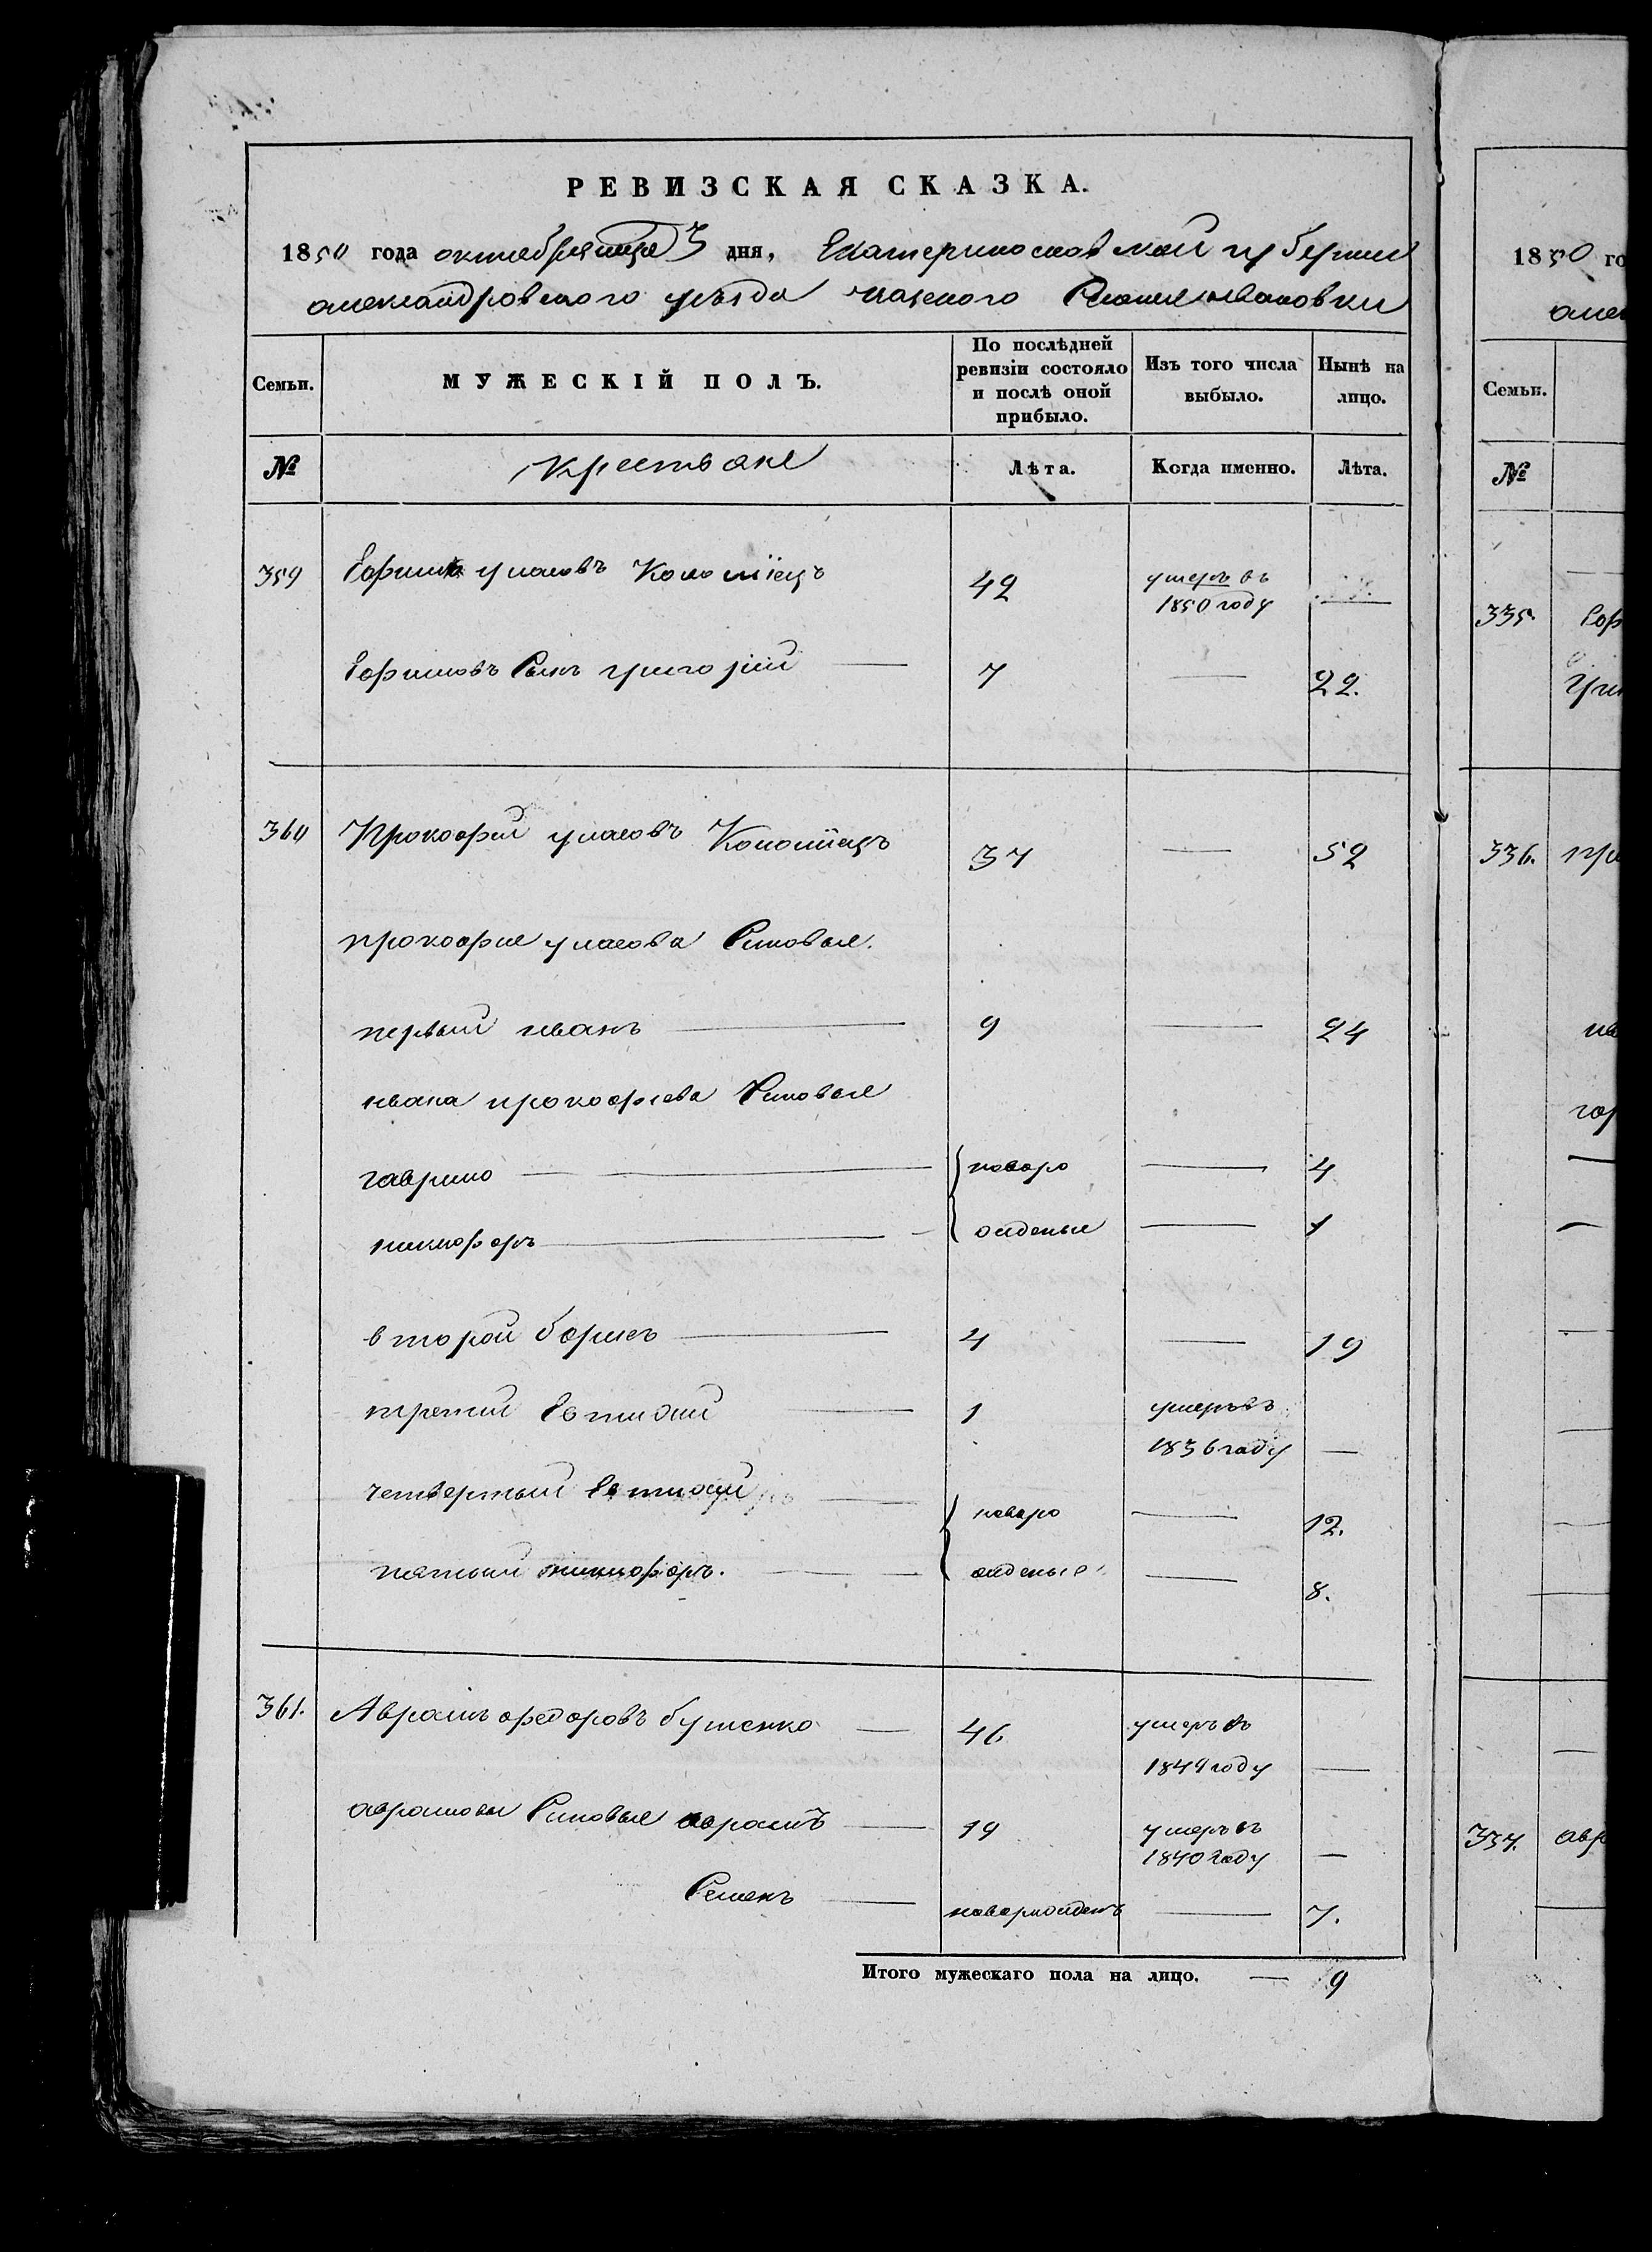 РЕВИЗСКАЯ СКАЗКА.
1850 года октября месяца 3 дня, Екатериносла́вской губернии
александровского уѣзда казеного Ивановки
Семьи.
МУЖЕСКІЙ ПОЛЪ.
По послѣдней ревизіи состояло и послѣ оной прибыло.
Изъ того числа выбыло.
Нынѣ на лицо.
№
Крестьяне
Лѣта.
Когда именно.
Лѣта.
359 Ефимъ Уласовъ Коломіецъ 42 умеръ въ
1850 году —
Ефимовъ Сынъ григорій — 7 — 22.
360 Прокофій уласовъ Коломіецъ 37 — 52
прокофія уласова Сыновья.
первый иванъ — 9 — 24
ивана прокофіева Сыновья
гаврило — новоро — 4
никифоръ — жденые — 1
второй борисъ — 4 — 19
третій Евтихій — 1 умеръ въ
1836 году —
четвертый Евтихій — новоро — 12.
пятый никифоръ. — жденые — 8.
361. Аврамъ федоровъ бутенко — 46 умеръ въ
1849 году —
аврамовы Сыновья аврамъ — 19 умеръ въ
1840 году —
Семенъ — новорожденъ — 7.
Итого мужескаго пола на лицо. — 9
1850 го
Семьи.
№
335.
336.
337. авр